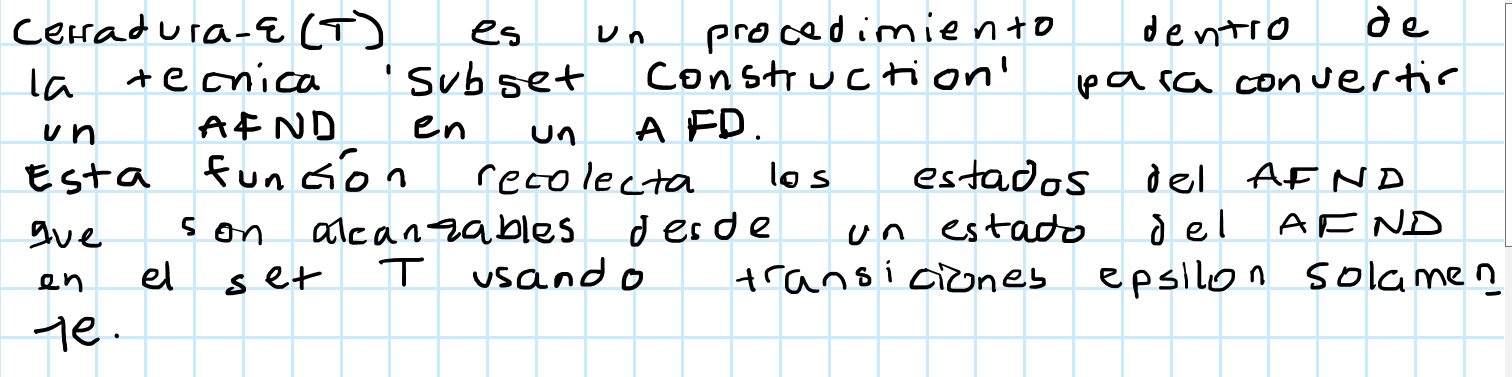 Cerradura-ε(T) es un procedimiento dentro de
la tecnica 'Subset Construction' para convertir
un AFND en un AFD.
Esta función recolecta los estados del AFND
que son alcanzables desde un estado del AFND
en el set T usando transiciones epsilon solamen
te.